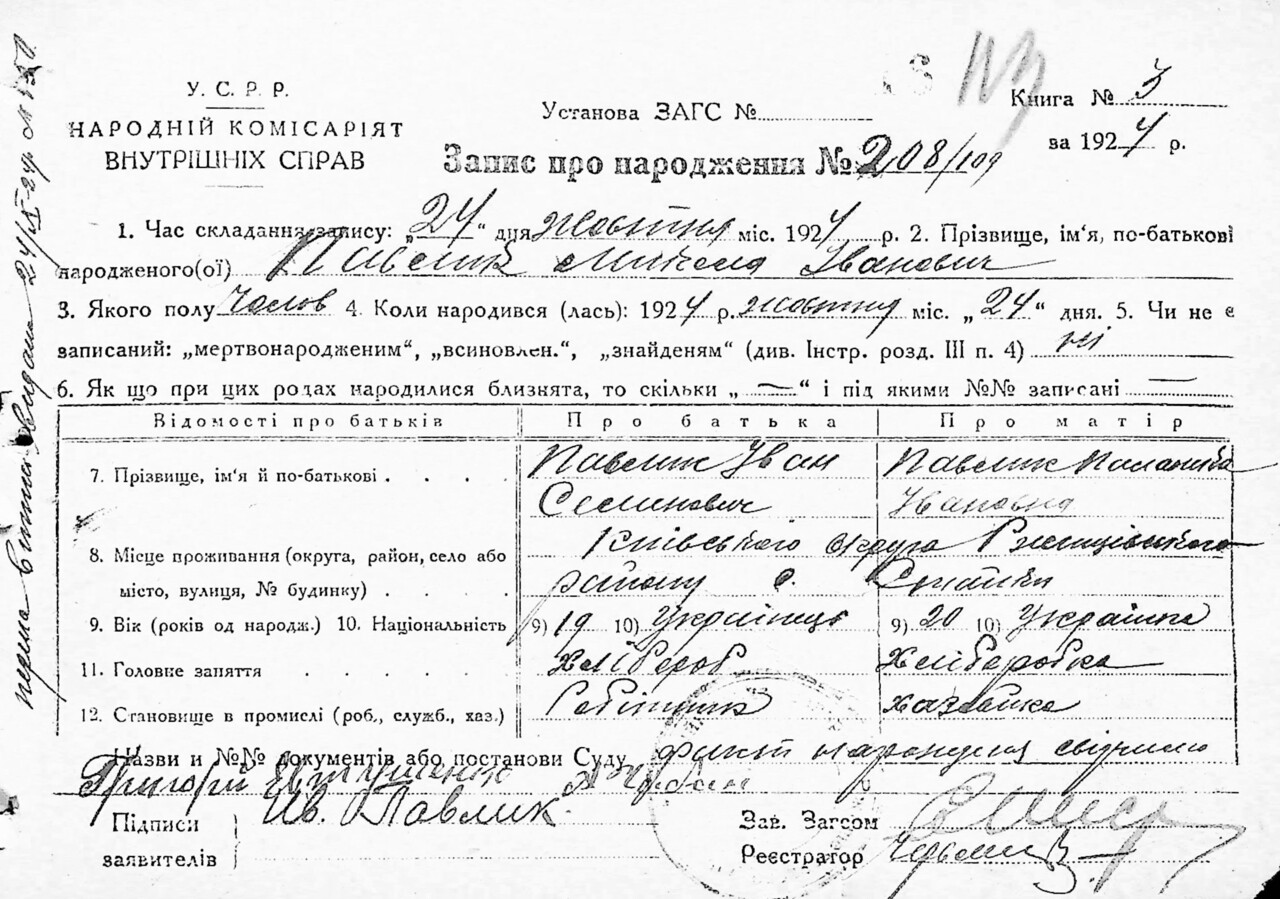 У. С. Р. Р.
НАРОДНІЙ КОМІСАРІЯТ
ВНУТРІШНІХ СПРАВ
Установа ЗАГС №
Книга № 3
за 1924 р.
Запис про народження № 208/109
1. Час складання запису: „24“ дня жовтня міс. 1924 р. 2. Прізвище, ім'я, по-батькові
народженого(ої) Павлик Микола Іванович
3. Якого полу Чолов 4. Коли народився (лась): 1924 р. жовтня міс. „24“ дня. 5. Чи не є
записаний: „мертвонародженим“, „всиновлен.“, „знайденям“ (див. Інстр. розд. III п. 4) ні
6. Як що при цих родах народилися близнята, то скільки „—“ і під якими №№ записані —
Відомості про батьків Про батька Про матір
7. Прізвище, ім'я й по-батькові . . . . Павлик Іван Павлик Палажка
Семинович Івановна
8. Місце проживання (округа, район, село або Київського округа Ржищівського
місто, вулиця, № будинку) . . . . району с. Стайки
9. Вік (років од народж.) 10. Національність 9) 19 10) Українець 9) 20 10) Українка
11. Головне заняття . . . . . Хлібороб Хліборобка
12. Становище в промислі (роб., служб., хаз.) Робітник хазяйка
Назви и №№ документів або постанови Суду факт народження свідчили
Григорій Євтушенко
Підписи Ів. Павлик
заявителів
Зав. Загсом
Реєстратор